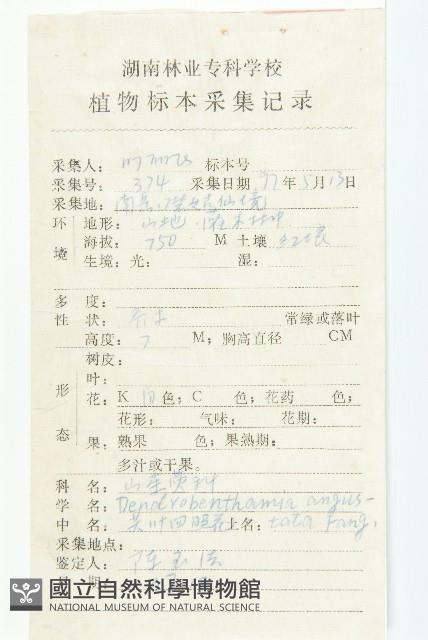 湖南林业专科学校
植物标本采集记录
采集人： 标本号
采集号： 374 采集日期 97年5月13日
采集地： 南岳
环 地形： 山地
海拔： 750 M 土壤 红壤
境
生境：光： 湿：
多 度：
性 状： 乔木 常绿或落叶
高度： 7 M；胸高直径 CM
树皮：
叶：
形
花： K 白色；C 色；花药 色；
花形： 气味： 花期：
态
果： 熟果 色；果熟期：
多汁或干果。
科 名： 山茱萸科
学 名： Dendrobenthamia angus-
中 名： 尖叶四照花 土名： tata Fang.
采集地点：
鉴定人： 陈
期
國立自然科學博物館
NATIONAL MUSEUM OF NATURAL SCIENCE